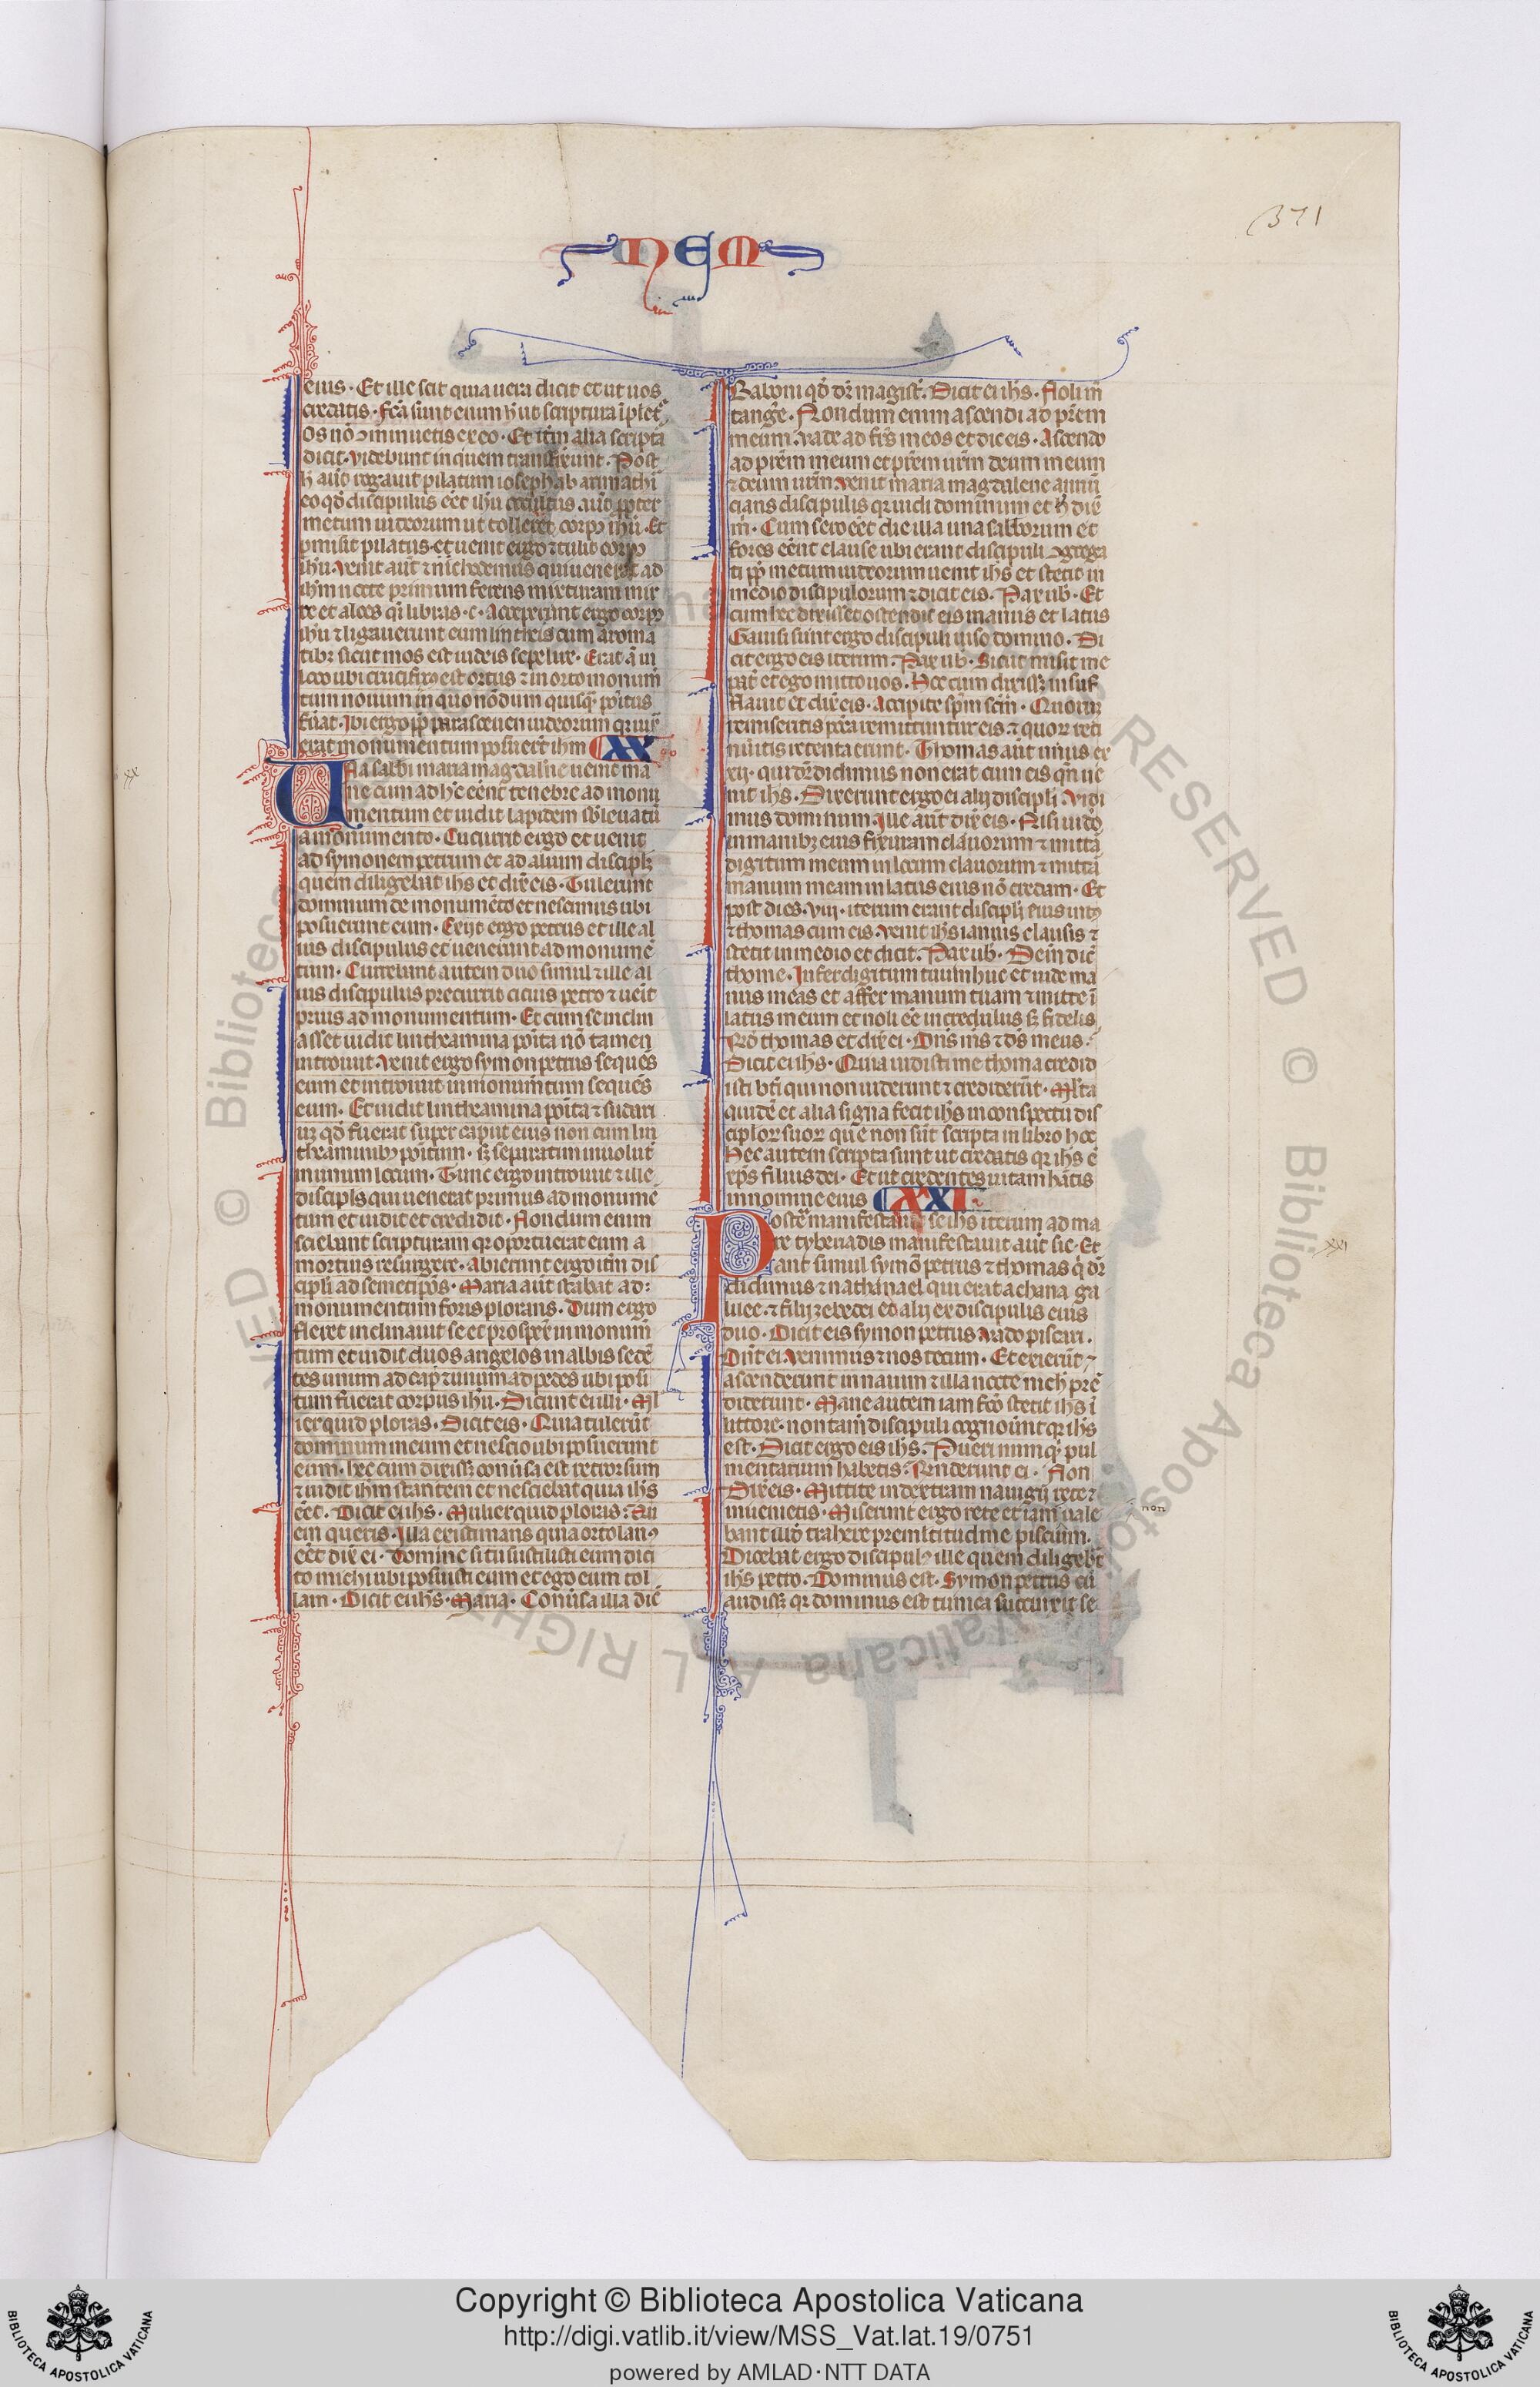 371
NEM
eius · Et ille scit quia uera dicit et ut uos
credatis · Fc̄a sunt enim h̄ ut scriptura īplet᷑
Os nō ↄminuetis ex eo · Et it̄m alia scriptã
dicit · videbunt in quem transfixerunt · Post
h̄ aut̄ rogauit pilatum ioseph ab arimathi
eo qd̄ discipulus eēt ih̄u occultus aut̄ ꝓpter
metum iudeorum ut tolleret corpꝰ ih̄u · Et
ꝑmisit pilatus · et uenit ergo ⁊ tulit corpꝰ
ih̄u · venit aut̄ ⁊ nichodemus qui uenerat ad
ih̄m nocte primum ferens mixturam mir
re et aloes q̄i libras · c · Acceperunt ergo corpꝰ
ih̄u ⁊ ligauerunt eum lintheis cum aroma
tibꝫ sicut mos est iudeis sepelire · Erat ā in
loco ubi crucifixꝰ est ortus ⁊ in orto monum̄
tum nouum in quo nōdum quisq̄ positus
fūat · Ibi ergo ꝓp̄ parasceuen iudeorum qꝛ iux̄
erat monumentum posuer̄t ih̄m XX
Una sabbi maria magdalene uenit ma
ne cum adhc̄ eēnt tenebre ad monu
mentum et uidit lapidem sb̄leuatū
a monumento · Cucurrit ergo et uenit
ad symonem petrum et ad alium discipl̄ꝫ
quem diligebat ih̄s et dix̄ eis · Tulerunt
dominum de monumēto et nescimus ubi
posuerunt eum · Exijt ergo petrus et ille al
ius discipulus et uenerunt ad monumē
tum · Currebant autem duo simul ⁊ ille al
ius discipulus precurrit cicius petro ⁊ uēit
prius ad monumentum · Et cum se inclin
asset uidit lintheamina poīta nō tamen
introiuit · venit ergo symon petrus sequēs
eum et introiuit in monum̄tum sequēs
eum · Et uidit lintheamina poīta ⁊ sudari
uꝫ qd̄ fuerat super caput eius non cum lin
theaminibꝰ poītum · sꝫ separatim inuolut̄
in unum locum · Tunc ergo introiuit ⁊ ille
discipl̄s qui uenerat primus ad monumē
tum et uidit et credidit · Nondum enim
sciebant scripturam qꝛ oportuerat eum a
mortuis resurgere · Abierunt ergo it̄m dis
cipli ad semetip̄os · Maria aut̄ stabat ad:
monumentum foris plorans · Dum ergo
fleret inclinauit se et prospex̄ in monum̄
tum et uidit duos angelos in albis sedē
tes unum ad cap̄ ⁊ unum ad pedes ubi posi
tum fuerat corpus ih̄u · Dicunt ei illi · Ml̄
ier quid ploras · Dicit eis · Quia tulerūt
dominum meum et nescio ubi posuerunt
eum · hec cum dixissꝫ conūsa est retrorsum
⁊ uidit ih̄m stantem et nesciebat quia ih̄s
eēt · Dicit ei ih̄s · Mulier quid ploras : Qu
em queris · Illa existimans quia ortolanꝰ
eēt dix̄ ei · Domine si tu sustulisti eum dici
to michi ubi posuisti eum et ego eum tol
lam · Dicit ei ih̄s · Maria · Conūsa illa dic̄
Raboni qd̄ dr̄ magist̄ · Dicit ei ih̄s · Noli m̄
tanḡe · Nondum enim ascendi ad pr̄em
meum · vade ad frēs meos et dic eis · Ascendo
ad pr̄em meum et pr̄em ur̄m deum meum
⁊ deum ur̄m · venit maria magdalene annū
cians discipulis qꝛ uidi dominum et h̄ dix̄
m̄ · Cum sero eēt die illa una sabborum et
fores eēnt clause ubi erant discipuli ↄgrega
ti ꝓp̄ metum iudeorum uenit ih̄s et stetit in
medio discipulorum ⁊ dicit eis · Pax uob · Et
cum hec dixisset ostendit eis manus et latus
Gauisi sunt ergo discipuli uiso domino · Di
cit ergo eis iterum · Pax ub · Sicut misit me
pat̄ et ego mitto uos · Hec cum dixissꝫ insuf
flauit et dix̄ eis · Accipite sp̄m sc̄m · Quoruꝫ
remiseritis pc̄ca remittuntur eis ⁊ quoꝝ reti
nūitis retenta erunt · Thomas aut̄ unus ex
xij · qui dr̄ didimus non erat cum eis qn̄ ue
nit ih̄s · Dixerunt ergo ei alij discipli · Vidi
mus dominum · Ille aut̄ dix̄ eis · Nisi uidō
in manibꝫ eius fixuram clauorum ⁊ mittā
digitum meum in locum clauorum ⁊ mittā
manum meam in latus eius nō credam · Et
post dies · viij · iterum erant discipl̄i eius intꝰ
⁊ thomas cum eis · venit ih̄s ianuis clausis ⁊
stetit in medio et dicit · Pax ub · Dein̄ dic̄
thome · Infer digitum tuum huc et uide ma
nus meas et affer manum tuam ⁊ mitte ī
latus meum et noli eē incredulus sꝫ fidelis
Rn̄d thomas et dix̄ ei · Dn̄s m̄s ⁊ ds̄ meus ·
Dicit ei ih̄s · Quia uidisti me thoma credid
isti bt̄i qui non uiderunt ⁊ crediderūt · Ml̄ta
quidē et alia signa fecit ih̄s in conspectu dis
ciploꝝ suoꝝ que non sūt scripta in libro hoc
Hec autem scripta sunt ut credatis qꝛ ih̄s ē
xp̄s filius dei · Et ut credentes uitam hātis
in nomine eius XXI ·
Postea manifestauit se ih̄s iterum ad ma
re tyberiadis manifestauit aut̄ sic · Et
ant simul symō petrus ⁊ thomas q̄ dr̄
didimus ⁊ nathanael qui erat a chana ga
lilee · ⁊ filij zebedei ⁊ d alij ex discipulis eius
duo · Dicit eis symon petrus vado piscari ·
Dn̄t ei · venimus ⁊ nos tecum · Et exierūt ⁊
ascenderunt in nauim ⁊ illa nocte nich̄ pren̄
diderunt · Mane autem iam fc̄o stetit ih̄s ī
littore · non tam̄ discipuli cognoūnt qꝛ ih̄s
est · Dicit ergo eis ih̄s · Pueri numqꝫ pul
mentarium habetis : Rn̄derunt ei · Non
Dix̄ eis · Mittite in dextram nauigij rete ⁊
inuenietis · Miserunt ergo rete et iam uale
non
bant illd̄ trahere pre ml̄titudine piscium ·
Dicebat ergo discipulꝰ ille quem diligeb̄t
ih̄s petro · Dominus est · Symon petrus cū
audissꝫ qꝛ dominus est tunica succinxit se
xx
xxi
Copyright © Biblioteca Apostolica Vaticana
http://digi.vatlib.it/view/MSS_Vat.lat.19/0751
powered by AMLAD·NTT DATA
BIBLIOTECA APOSTOLICA VATICANA
BIBLIOTECA APOSTOLICA VATICANA